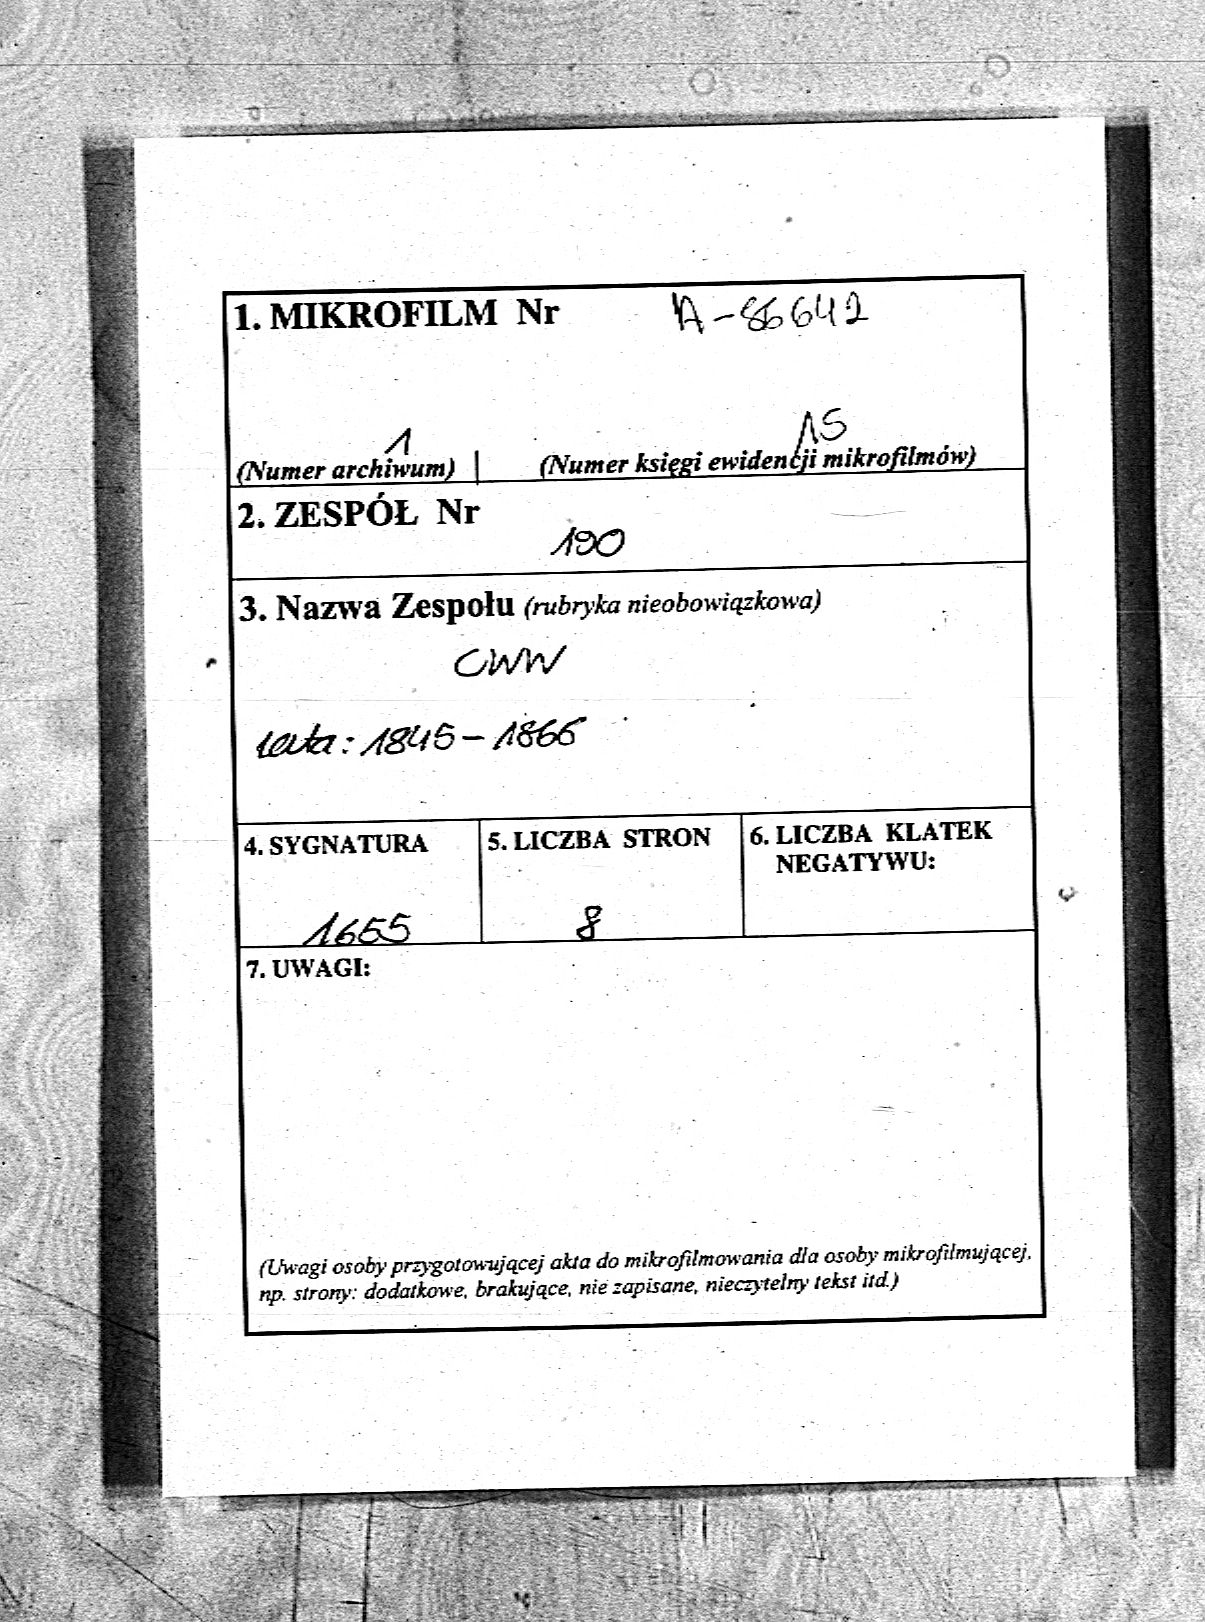 1. MIKROFILM Nr A-86642
1 15
(Numer archiwum) | (Numer księgi ewidencji mikrofilmów)
2. ZESPÓŁ Nr
190
3. Nazwa Zespołu (rubryka nieobowiązkowa)
CWW
lata: 1845-1866
4. SYGNATURA 5. LICZBA STRON 6. LICZBA KLATEK
NEGATYWU:
1655 8
7. UWAGI:
(Uwagi osoby przygotowującej akta do mikrofilmowania dla osoby mikrofilmującej,
np. strony: dodatkowe, brakujące, nie zapisane, nieczytelny tekst itd.)